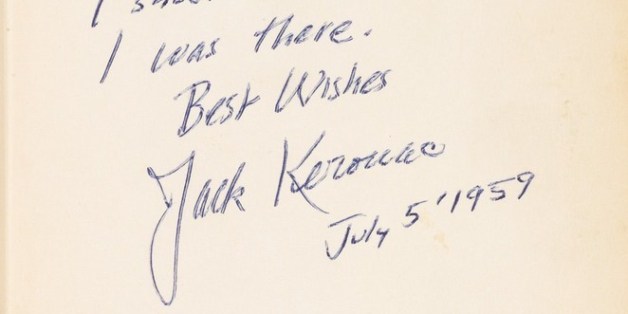 I
I was there.
Best Wishes
Jack Kerouac
July 5'1959